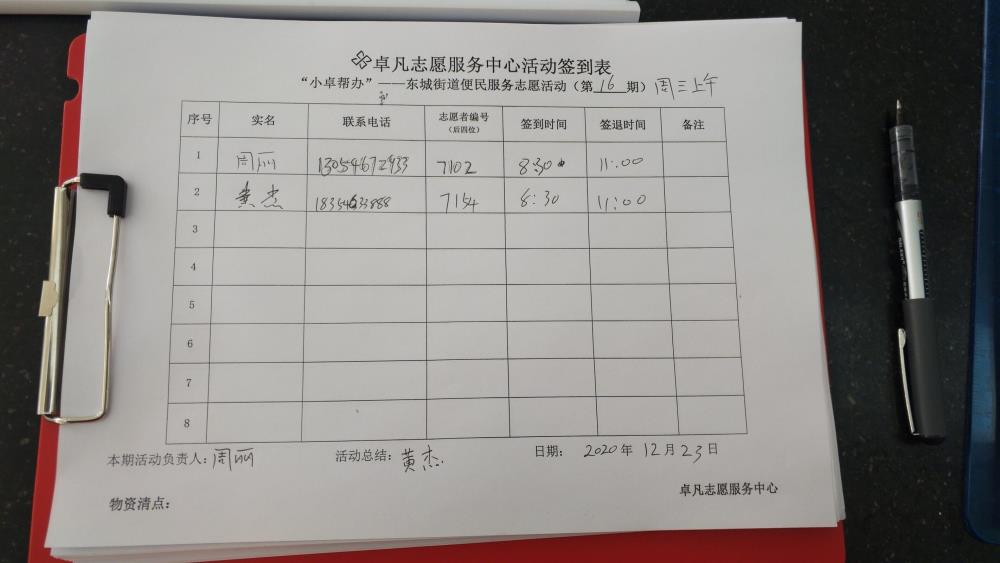 卓凡志愿服务中心活动签到表
“小卓帮办”——东城街道便民服务志愿活动（第16期）周三上午
序号 实名 联系电话 志愿者编号（后四位） 签到时间 签退时间 备注
1 周丽 13054672933 7102 8:30 11:00
2 黄杰 7154 8:30 11:00
3
4
5
6
7
8
本期活动负责人：周丽 活动总结：黄杰. 日期： 2020年12月23日
卓凡志愿服务中心
物资清点：